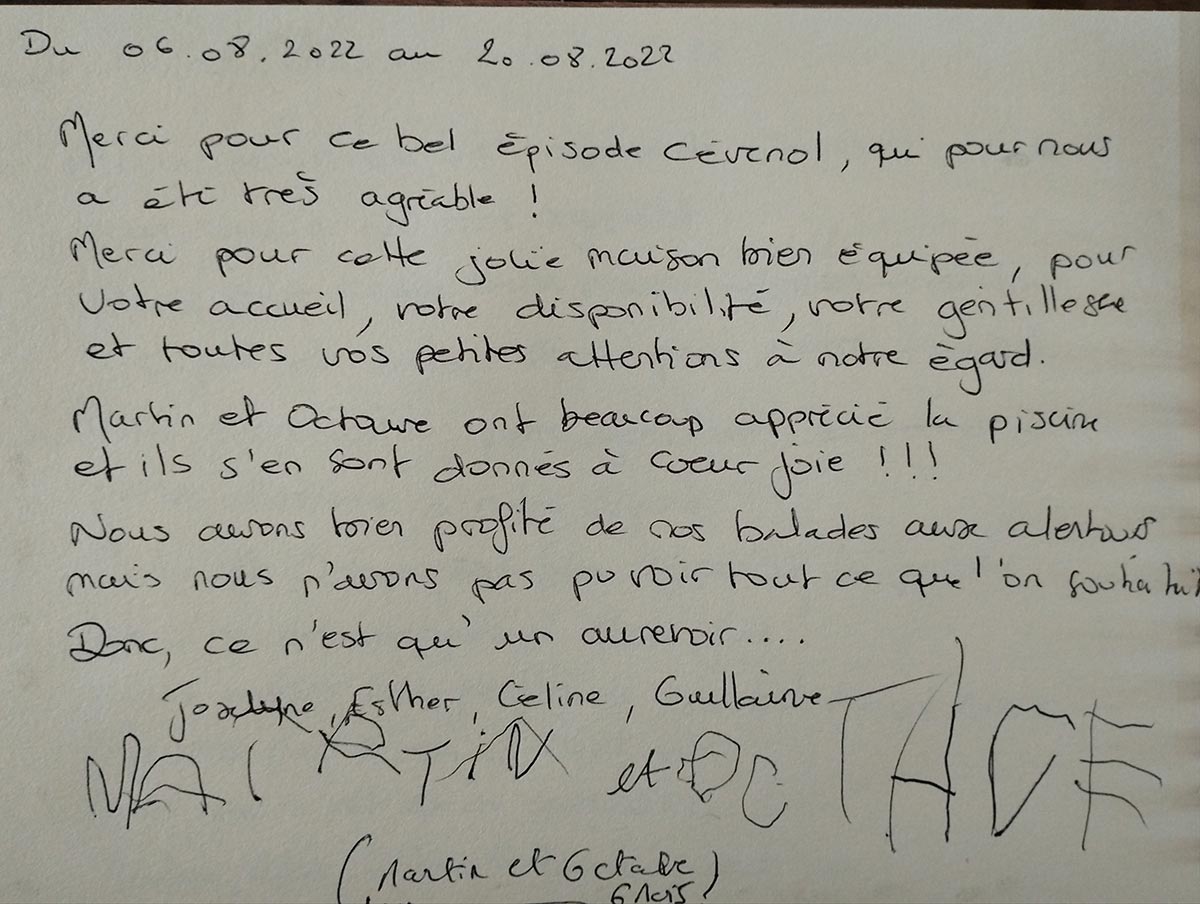 Du 06.08.2022 au 20.08.2022
Merci pour ce bel épisode cévenol, qui pour nous
a été très agréable !
Merci pour cette jolie maison bien équipée, pour
votre accueil, votre disponibilité, votre gentillesse
et toutes vos petites attentions à notre égard.
Martin et Octave ont beaucoup apprécié la piscine
et ils s'en sont donnés à coeur joie !!!
Nous avons bien profité de nos balades aux alentours
mais nous n'avons pas pu voir tout ce que l'on souhaitait
Donc, ce n'est qu'un aurevoir....
Jocelyne, Esther, Céline, Guillaume
MARTIN et OCTAVE
(Martin et Octave)